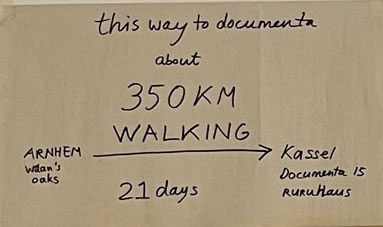 this way to documenta
about
350 KM
WALKING
ARNHEM
oaks
21 days
Kassel
Documenta 15
RURUHaus